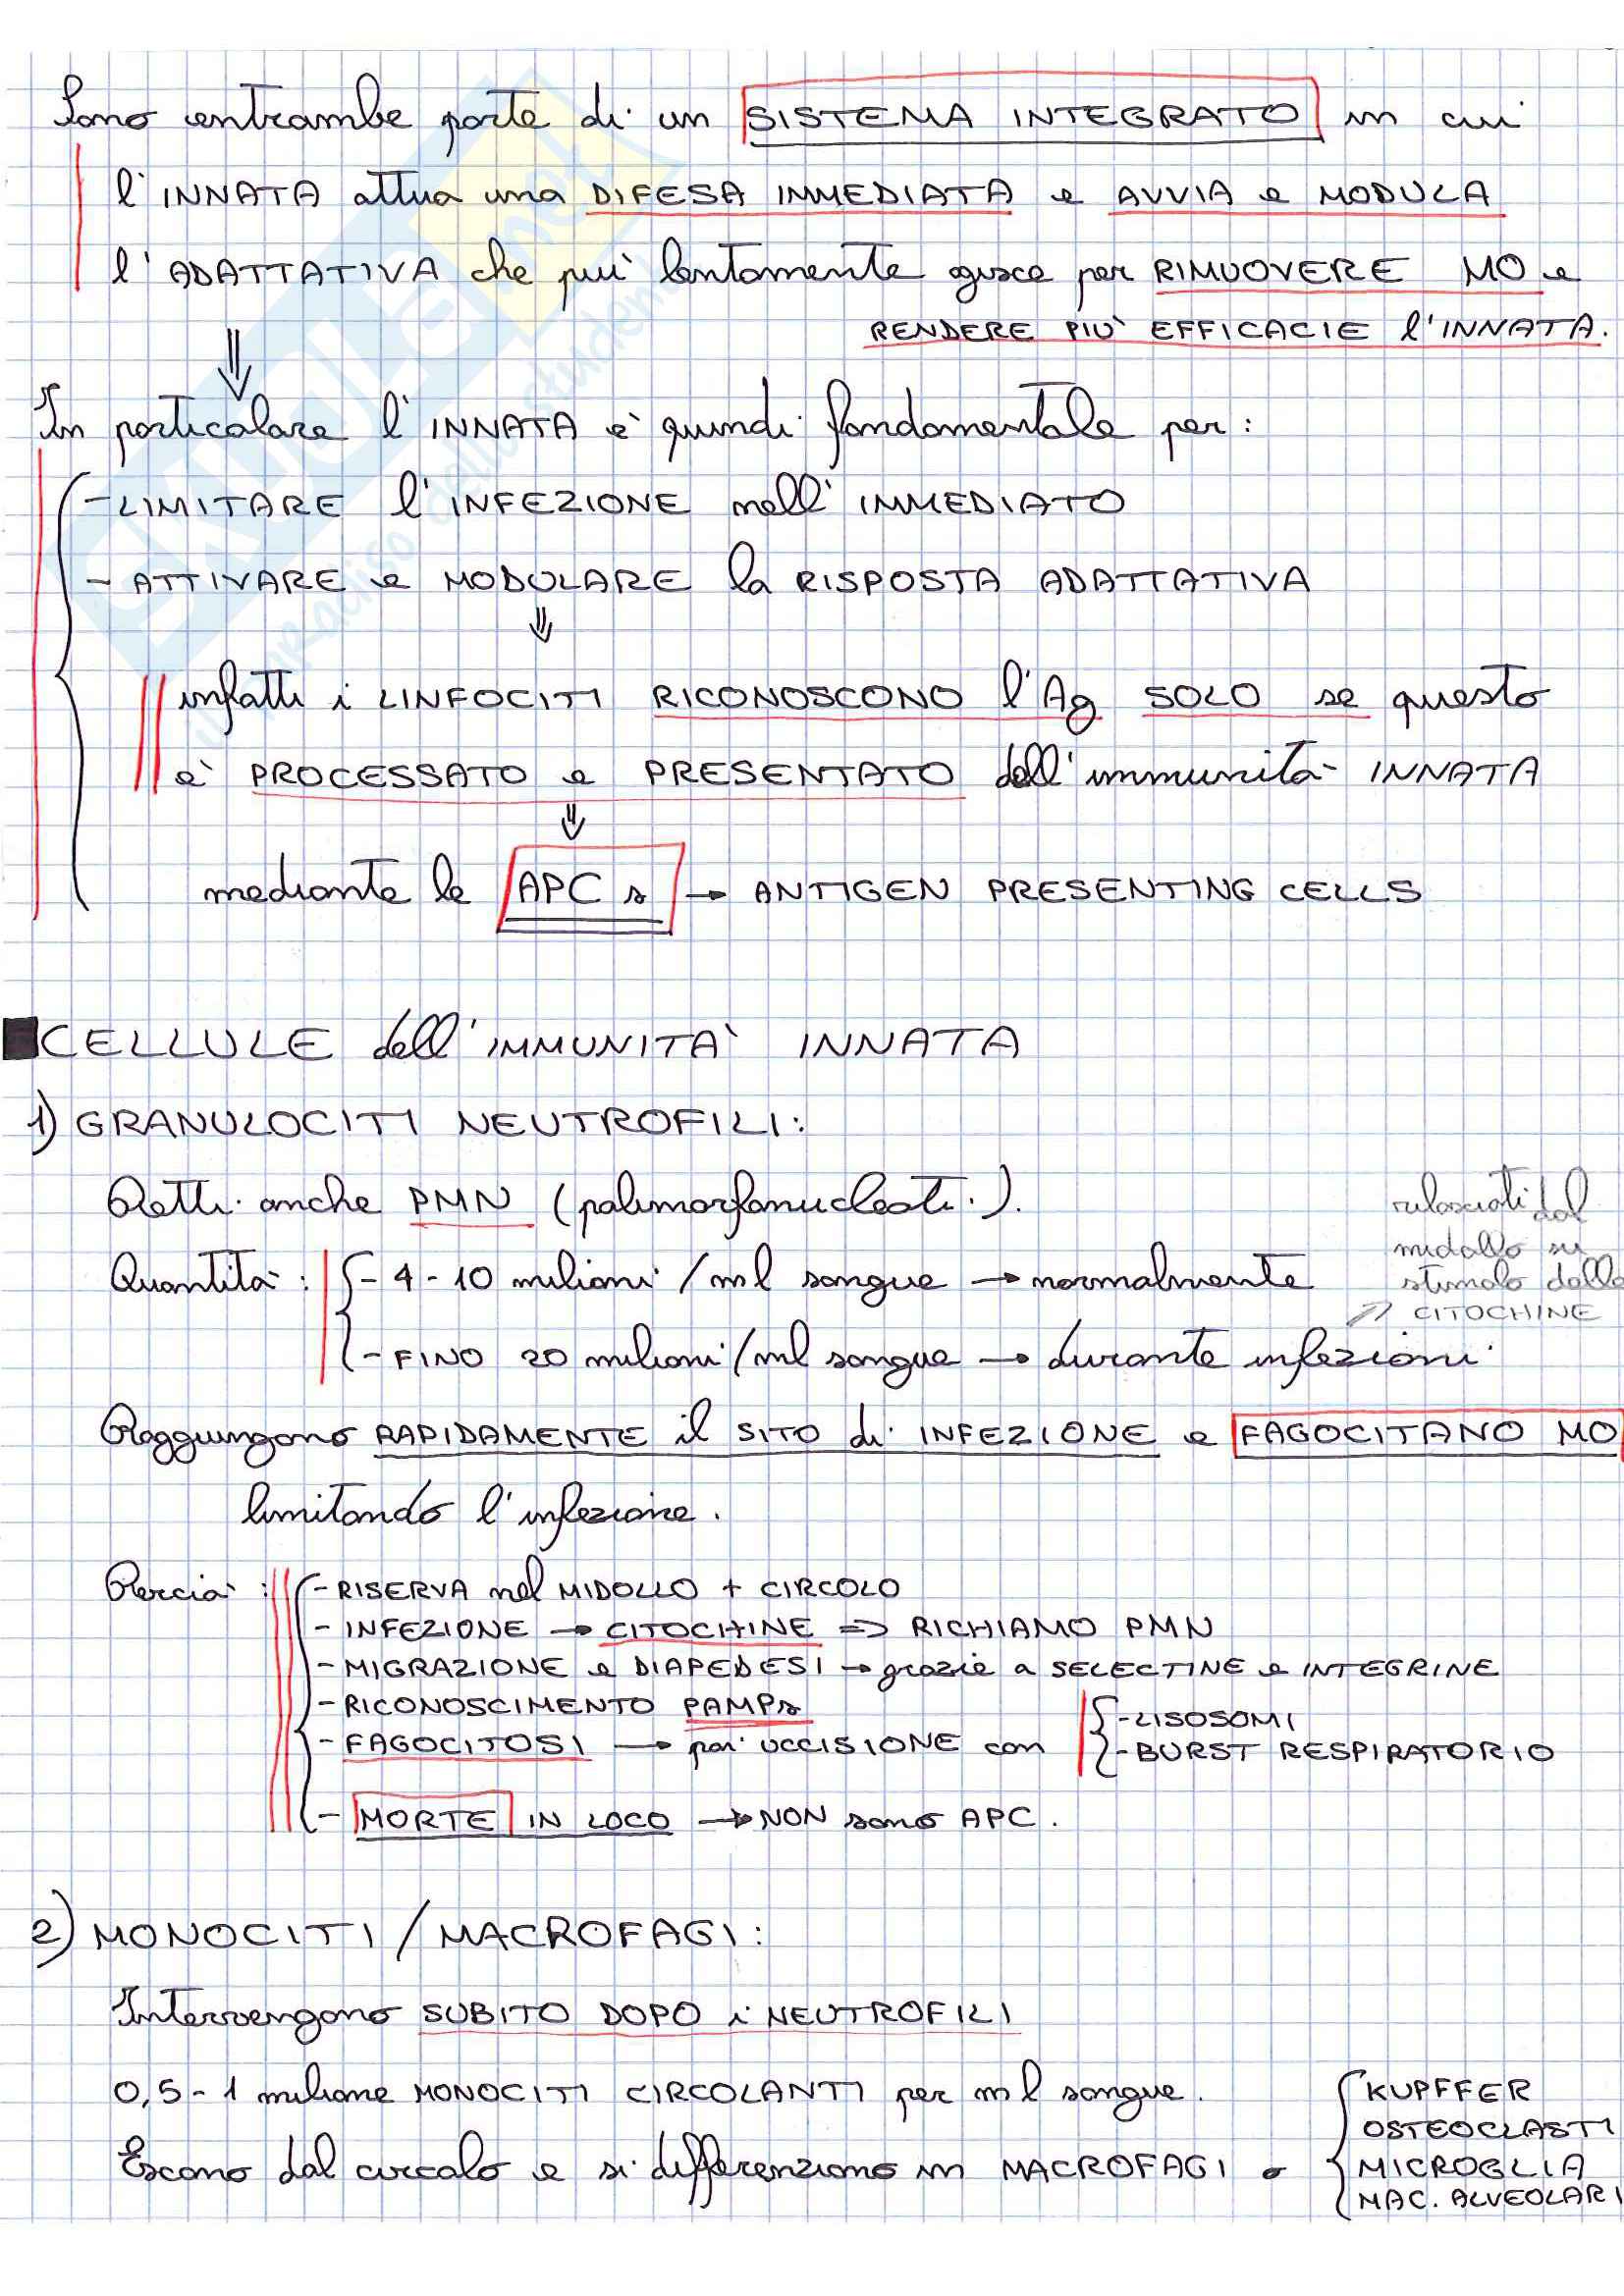 Sono entrambe parte di un SISTEMA INTEGRATO in cui
l'INNATA attua una DIFESA IMMEDIATA e AVVIA e MODULA
l'ADATTATIVA che più lentamente agisce per RIMUOVERE MO e
RENDERE PIÙ EFFICACIE l'INNATA.
⇓
In particolare l'INNATA è quindi fondamentale per:
- LIMITARE l'INFEZIONE nell'IMMEDIATO
- ATTIVARE e MODULARE la RISPOSTA ADATTATIVA
⇓
infatti i LINFOCITI RICONOSCONO l'Ag SOLO se questo
è PROCESSATO e PRESENTATO dall'immunità INNATA
⇓
mediante le APCs → ANTIGEN PRESENTING CELLS
■ CELLULE dell'IMMUNITÀ INNATA
1) GRANULOCITI NEUTROFILI:
Detti anche PMN (polimorfonucleati).
Quantità: - 4-10 milioni/ml sangue → normalmente
- FINO 20 milioni/ml sangue → durante infezioni
rilasciati dal
midollo su
stimolo delle
↗ CITOCHINE
Raggiungono RAPIDAMENTE il SITO di INFEZIONE e FAGOCITANO MO
limitando l'infezione.
Perciò: - RISERVA nel MIDOLLO + CIRCOLO
- INFEZIONE → CITOCHINE ⇒ RICHIAMO PMN
- MIGRAZIONE e DIAPEDESI → grazie a SELECTINE e INTEGRINE
- RICONOSCIMENTO PAMPs
- FAGOCITOSI → poi UCCISIONE con - LISOSOMI
- BURST RESPIRATORIO
- MORTE IN LOCO → NON sono APC.
2) MONOCITI/MACROFAGI:
Intervengono SUBITO DOPO i NEUTROFILI
0,5-1 milione MONOCITI CIRCOLANTI per ml sangue.
Escono dal circolo e si differenziano in MACROFAGI o KUPFFER
OSTEOCLASTI
MICROGLIA
MAC. ALVEOLARI